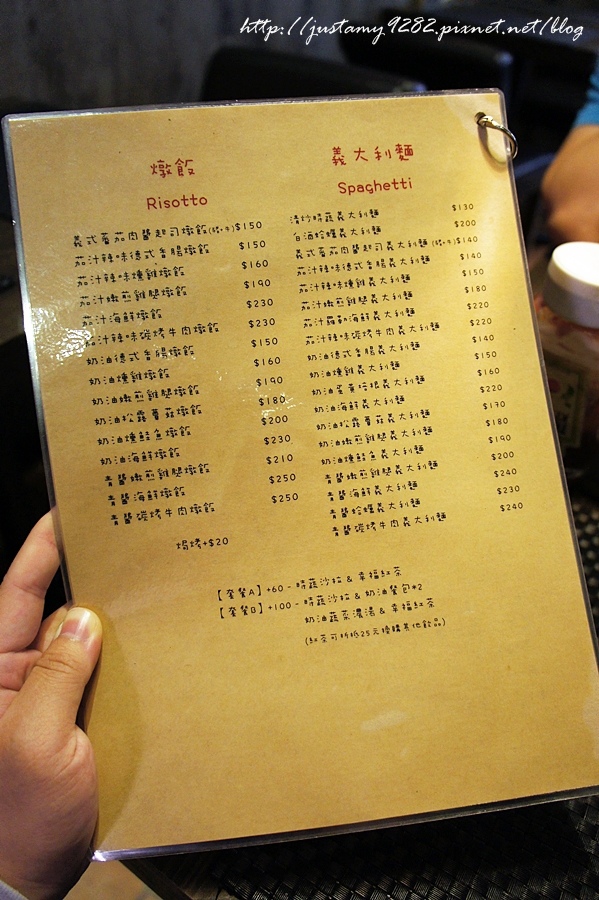 http://justamy9282.pixnet.net/blog
燉飯
Risotto
義式番茄肉醬起司燉飯(豬.牛) $150
茄汁辣味德式香腸燉飯 $150
茄汁辣味燻雞燉飯 $160
茄汁嫩煎雞腿燉飯 $190
茄汁海鮮燉飯 $230
茄汁辣味碳烤牛肉燉飯 $230
奶油德式香腸燉飯 $150
奶油燻雞燉飯 $160
奶油嫩煎雞腿燉飯 $190
奶油松露蘑菇燉飯 $180
奶油燻鮭魚燉飯 $200
奶油海鮮燉飯 $230
青醬嫩煎雞腿燉飯 $210
青醬海鮮燉飯 $250
青醬碳烤牛肉燉飯 $250
焗烤+$20
義大利麵
Spaghetti
清炒時蔬義大利麵 $130
白酒蛤蠣義大利麵 $200
義式番茄肉醬起司義大利麵(豬.牛) $140
茄汁辣味德式香腸義大利麵 $140
茄汁辣味燻雞義大利麵 $150
茄汁嫩煎雞腿義大利麵 $180
茄汁羅勒海鮮義大利麵 $220
茄汁辣味碳烤牛肉義大利麵 $220
奶油德式香腸義大利麵 $140
奶油燻雞義大利麵 $150
奶油蛋黃培根義大利麵 $160
奶油海鮮義大利麵 $220
奶油松露蘑菇義大利麵 $170
奶油嫩煎雞腿義大利麵 $180
奶油燻鮭魚義大利麵 $190
青醬嫩煎雞腿義大利麵 $200
青醬海鮮義大利麵 $240
青醬蛤蠣義大利麵 $230
青醬碳烤牛肉義大利麵 $240
【套餐A】+60 - 時蔬沙拉 & 幸福紅茶
【套餐B】+100 - 時蔬沙拉 & 奶油餐包*2
奶油蔬菜濃湯 & 幸福紅茶
(紅茶可折抵25元換購其他飲品)